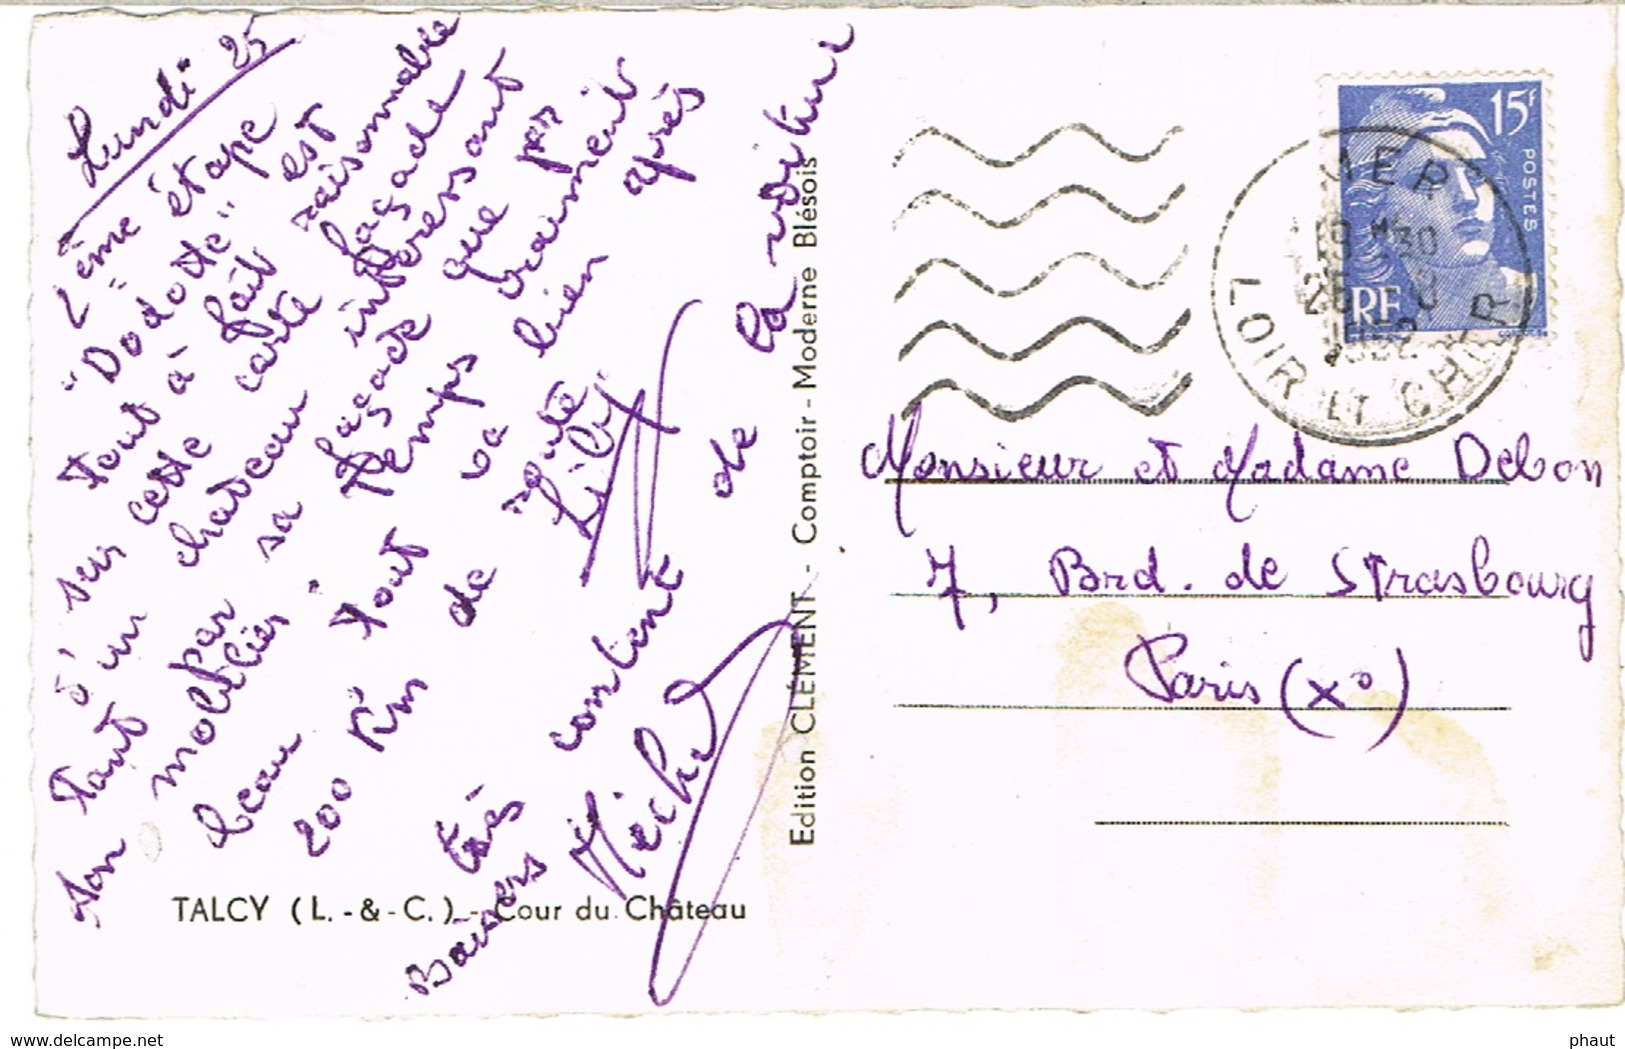 Lundi 25
2ème étape
"Dodotte" est
tout à fait raisonnable
sur cette carte façade
d'un chateau intéressant
tant par sa façade que par
son mobilier. Temps vraiment
beau tout va bien après
200 Km de route
Lily
très contente de la voiture
Baisers
Michel
TALCY (L.-&-C.) - Cour du Château
Edition CLÉMENT - Comptoir - Moderne Blésois
15F
POSTES
RF
MER
19 H 30
LOIR ET CHER
Monsieur et Madame Debon
7, Brd. de Strasbourg
Paris (X°)
www.delcampe.net
phaut